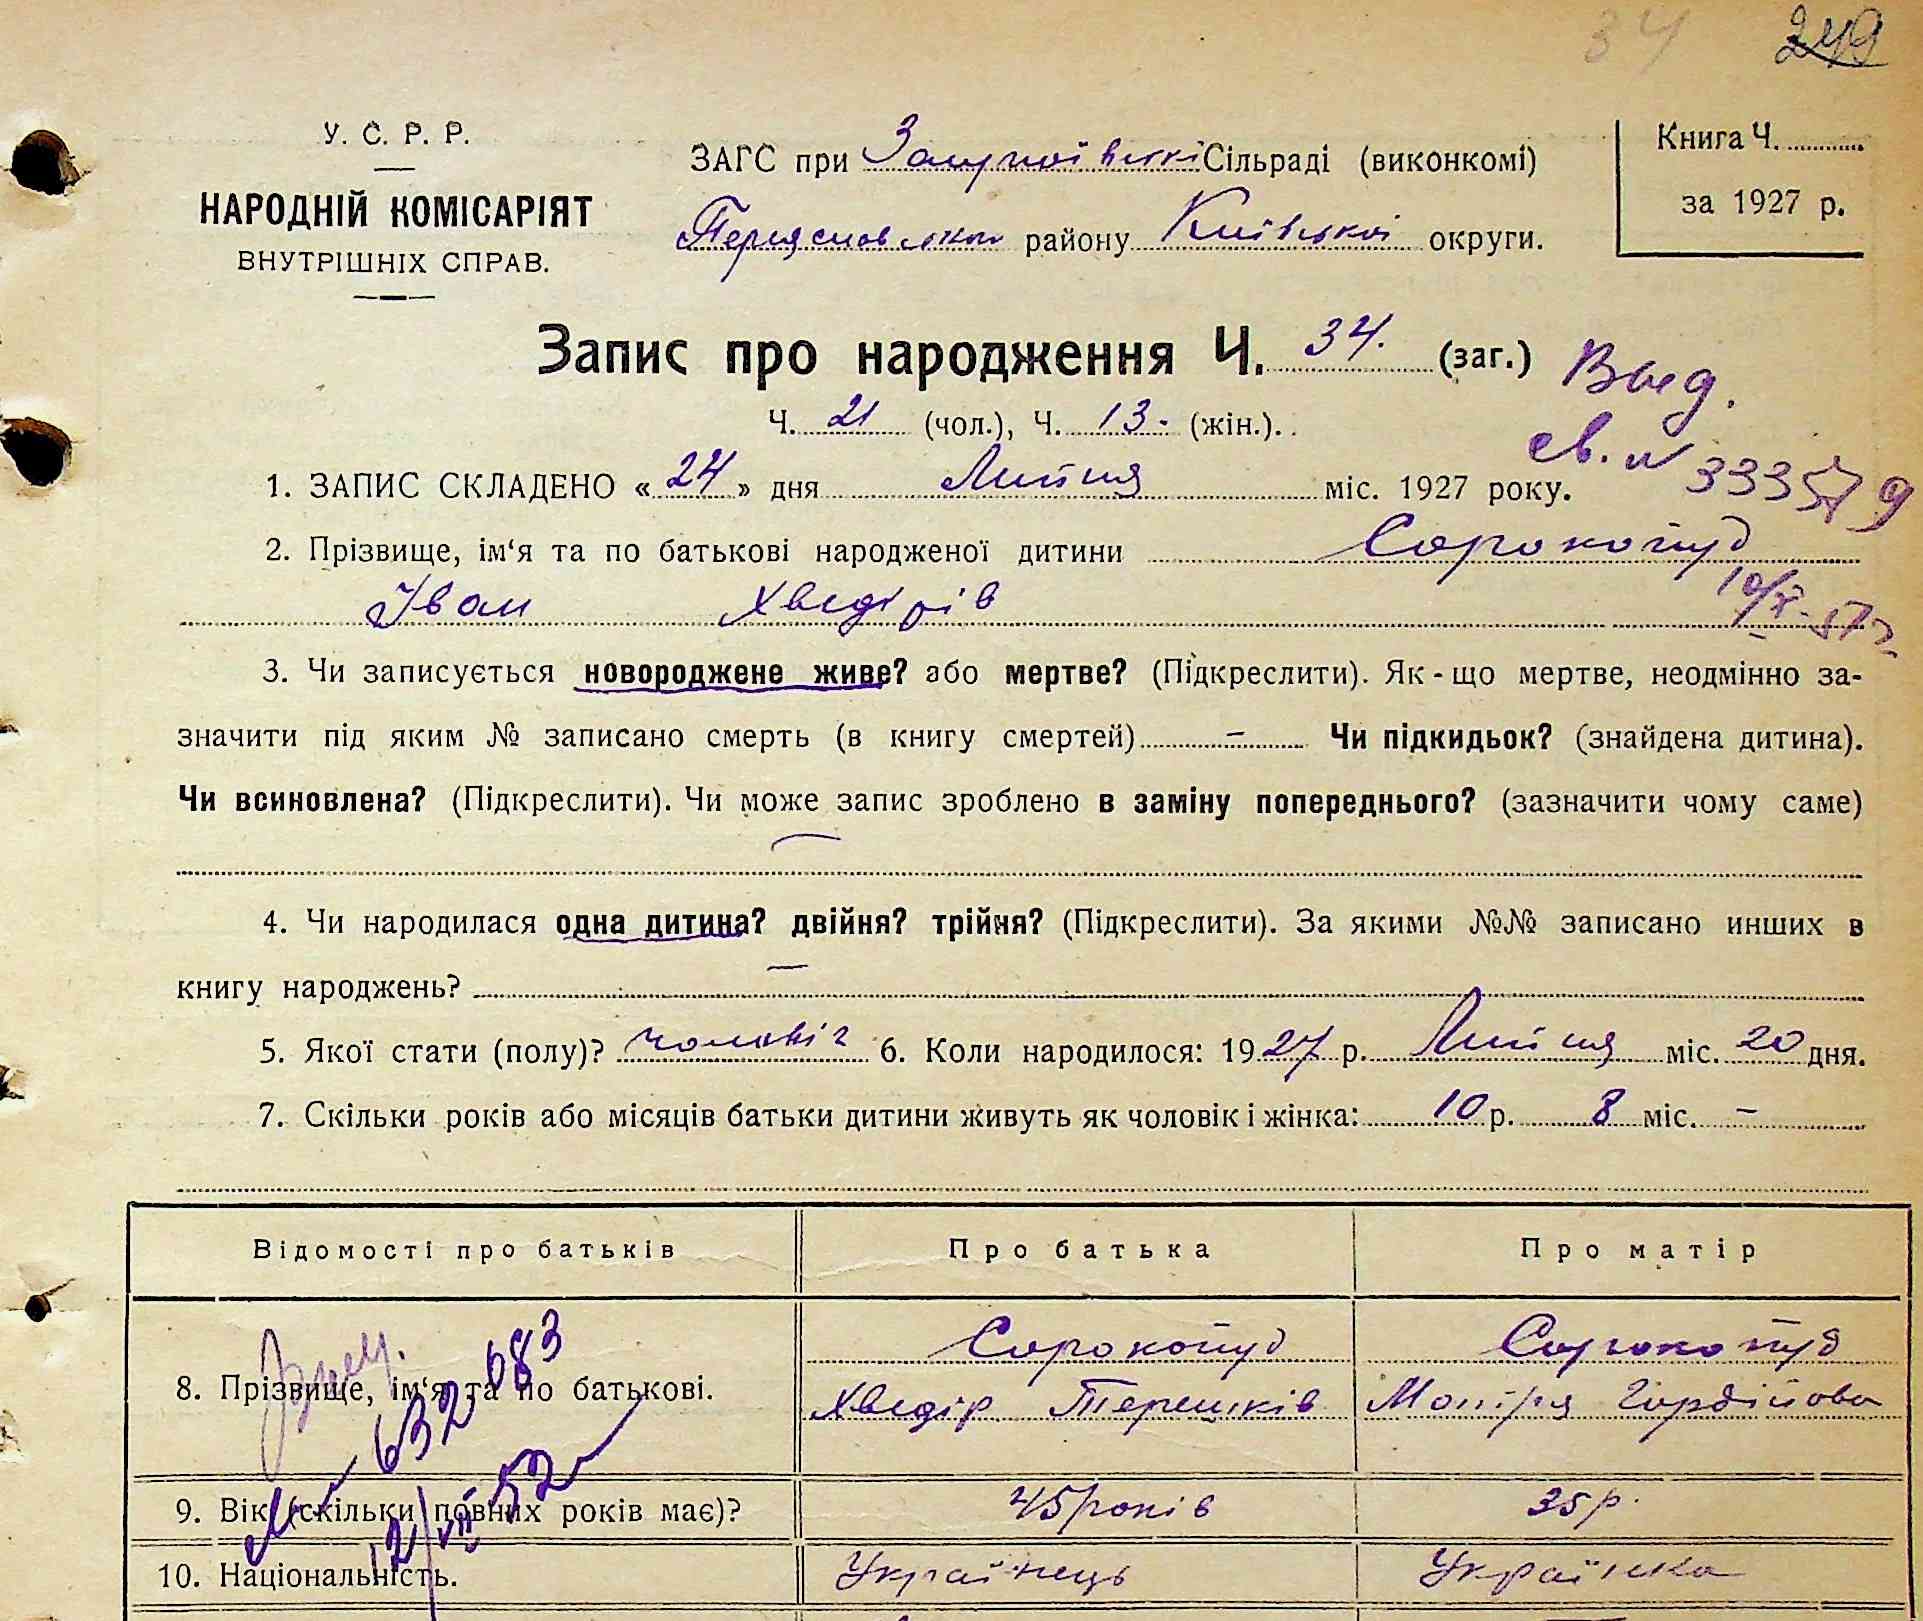 34 249
У. С. Р. Р.
НАРОДНІЙ КОМІСАРІЯТ
ВНУТРІШНІХ СПРАВ.
ЗАГС при Сільраді (виконкомі)
Переяславськ району Київської округи.
Книга Ч.
за 1927 р.
Запис про народження Ч. 34. (заг.)
Ч. 21 (чол.), Ч. 13. (жін.).
Выд.
св. N 333579
1. ЗАПИС СКЛАДЕНО «24» дня Липня міс. 1927 року.
2. Прізвище, ім‘я та по батькові народженої дитини Сорокопуд
Іван Хведірів
10/X-57 г.
3. Чи записується новороджене живе? або мертве? (Підкреслити). Як-що мертве, неодмінно за-
значити під яким № записано смерть (в книгу смертей) – Чи підкидьок? (знайдена дитина).
Чи всиновлена? (Підкреслити). Чи може запис зроблено в заміну попереднього? (зазначити чому саме)
4. Чи народилася одна дитина? двійня? трійня? (Підкреслити). За якими №№ записано инших в
книгу народжень? —
5. Якої стати (полу)? чоловіч 6. Коли народилося: 1927 р. Липня міс. 20 дня.
7. Скільки років або місяців батьки дитини живуть як чоловік і жінка: 10 р. 8 міс. –
Відомості про батьків Про батька Про матір
8. Прізвище, ім‘я та по батькові. Сорокопуд Сорокопуд
Хведір Терешків Мотря Гордійова
632083
9. Вік (скільки повних років має)? 45 років 35 р.
12/VII 52
10. Національність. Українець Українка